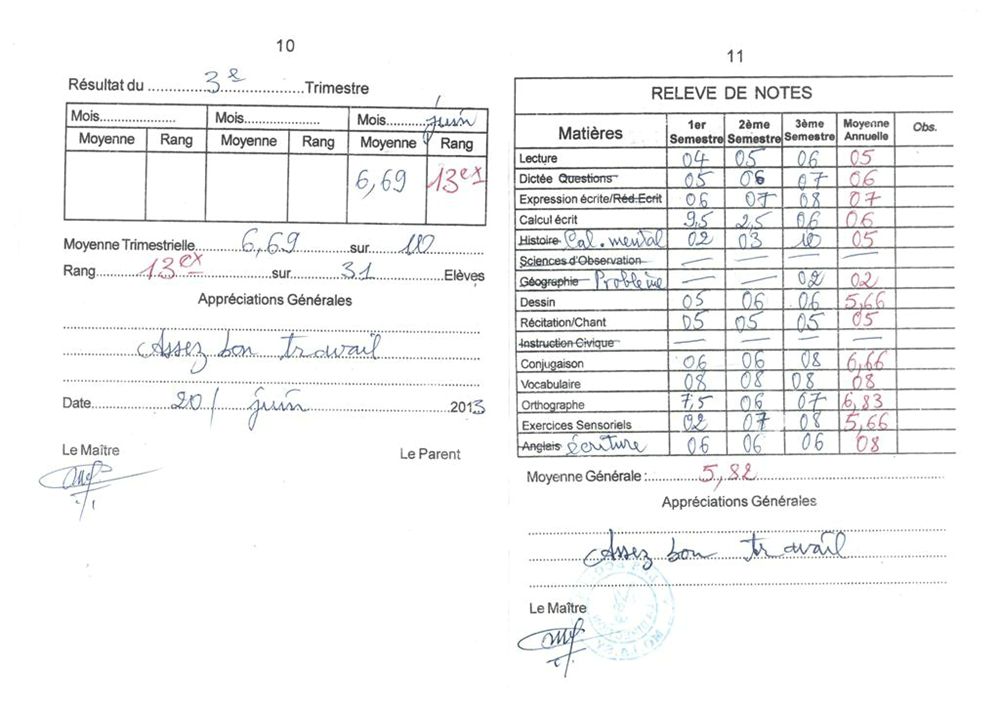 10
Résultat du ... 3e ... Trimestre
Mois... Mois... Mois... juin
Moyenne Rang Moyenne Rang Moyenne Rang
6,69 13ex
Moyenne Trimestrielle... 6,69 sur 10
Rang... 13ex ... sur ... 31 ... Elèves
Appréciations Générales
Assez bon travail
Date... 20/ juin ... 2013
Le Maître Le Parent
11
RELEVE DE NOTES
Matières 1er Semestre 2ème Semestre 3ème Semestre Moyenne Annuelle Obs.
Lecture 04 05 06 05
Dictée Questions 05 06 07 06
Expression écrite/Réd.Ecrit 06 07 08 07
Calcul écrit 9,5 2,5 06 06
Histoire Cal. mental 02 03 10 05
Sciences d'Observation — — — —
Géographie Problème — — 02 02
Dessin 05 06 06 5,66
Récitation/Chant 05 05 05 05
Instruction Civique — — — —
Conjugaison 06 06 08 6,66
Vocabulaire 08 08 08 08
Orthographe 7,5 06 07 6,83
Exercices Sensoriels 02 07 08 5,66
Anglais écriture 06 06 06 08
Moyenne Générale :... 5,82
Appréciations Générales
Assez bon travail
Le Maître